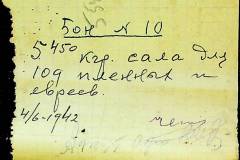 Бон № 10
5450 кгр. сала для
109 пленных и
евреев.
4/6-1942